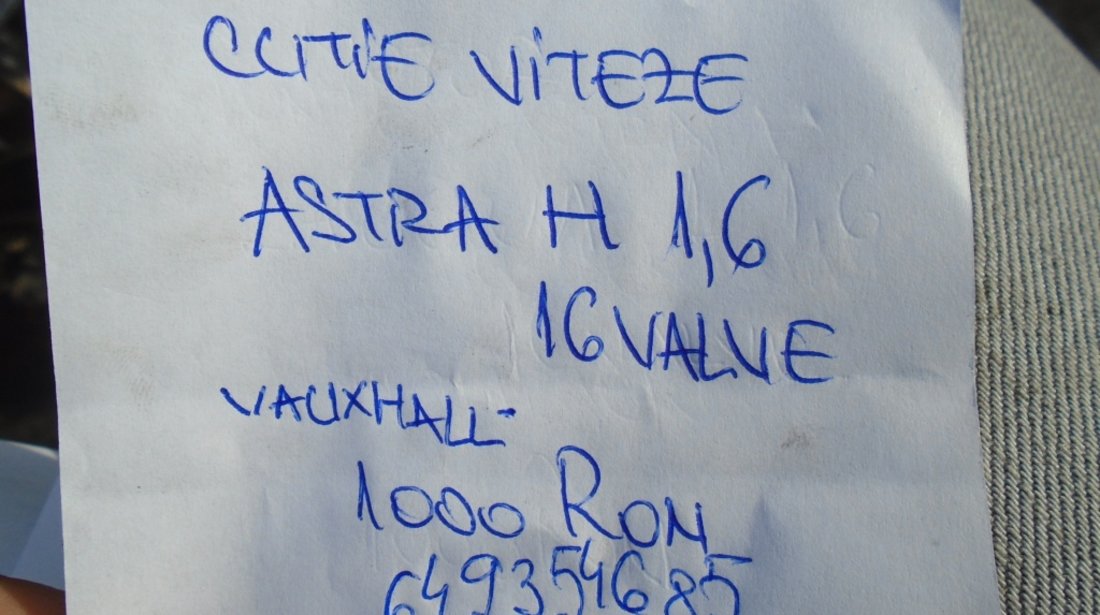 CUTIE VITEZE
ASTRA H 1,6
16 VALVE
VAUXHALL -
1000 RON
649354685